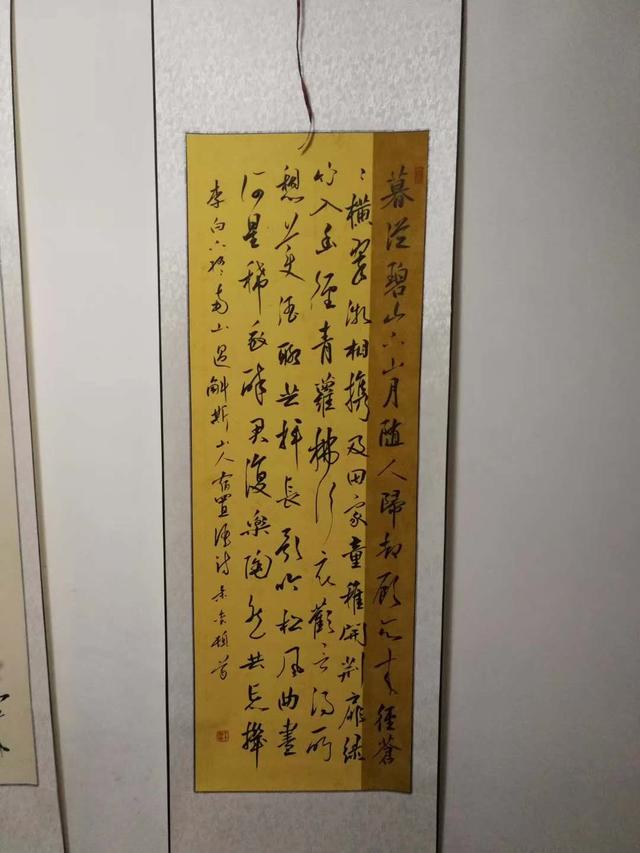 暮從碧山下山月隨人歸却顧所来徑蒼
〻橫翠微相携及田家童稚開荆扉綠
竹入幽徑青蘿拂行衣歡言得所
憩美酒聊共揮長歌吟松風曲盡
河星稀我醉君復樂陶然共忘機
李白下終南山過斛斯山人宿置酒詩 頓首